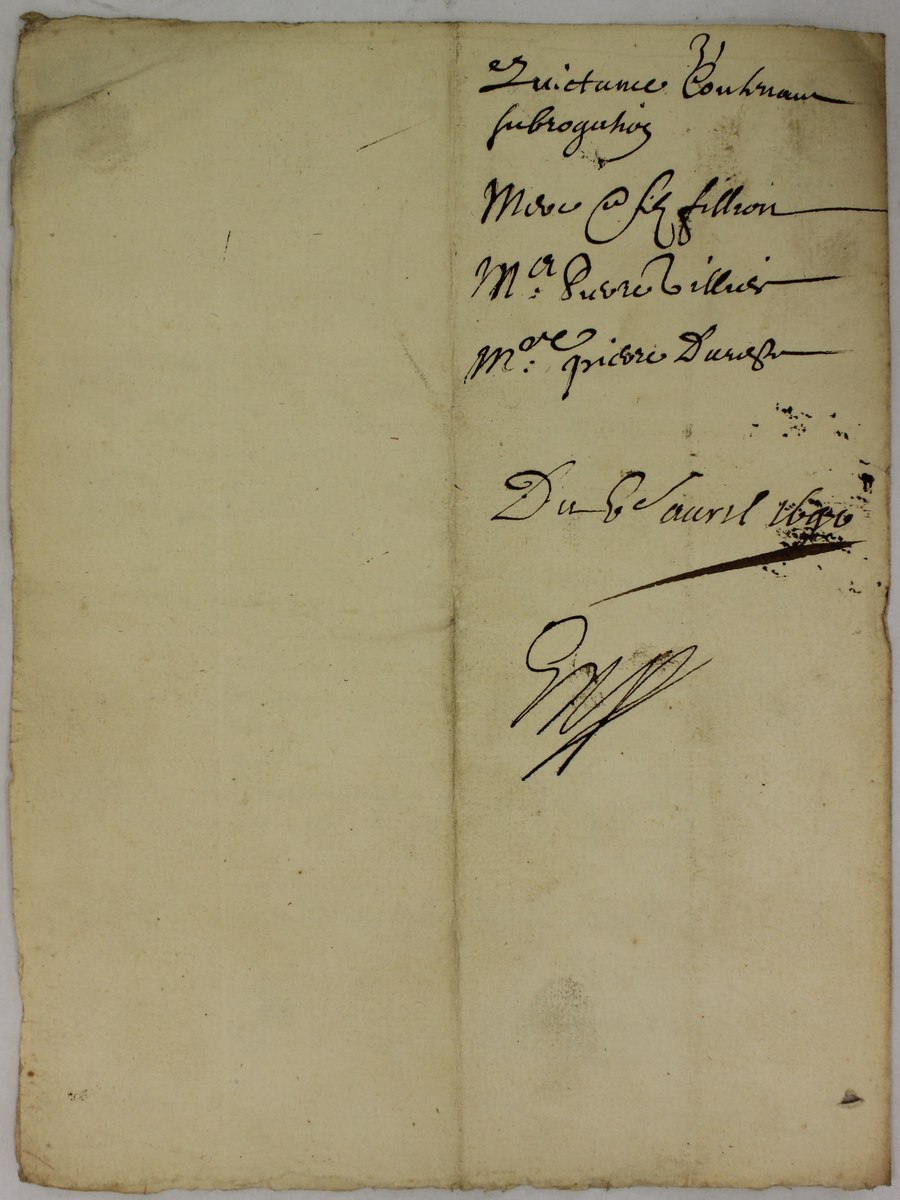 Quictance Contenant
subrogation
Mere & filz fillion
Me. Pierre Villier
Mre. pierre
Du avril 1690